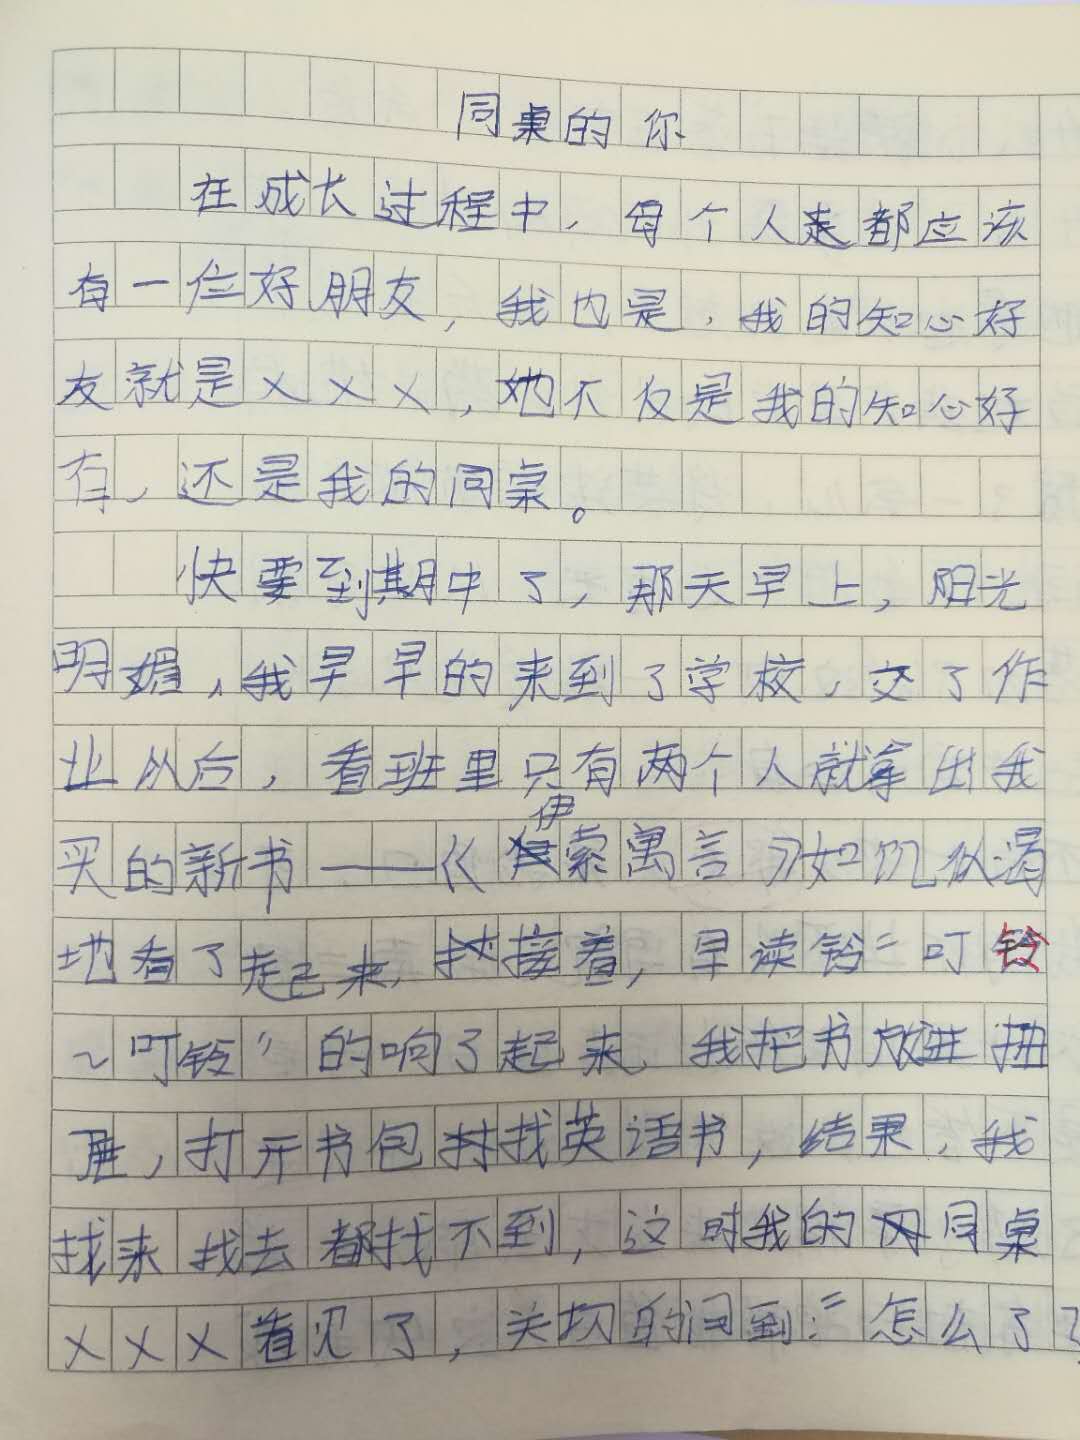 同桌的你
在成长过程中，每个人都应该
有一位好朋友，我也是，我的知心好
友就是×××，她不仅是我的知心好
友，还是我的同桌。
快要到期中了，那天早上，阳光
明媚，我早早的来到了学校，交了作
业以后，看班里只有两个人就拿出我
买的新书——《伊索寓言》如饥似渴
地看了起来，接着，早读铃“叮铃
～叮铃”的响了起来，我把书放进抽
屉，打开书包找英语书，结果，我
找来找去都找不到，这时我的同桌
×××看见了，关切的问到：“怎么了？